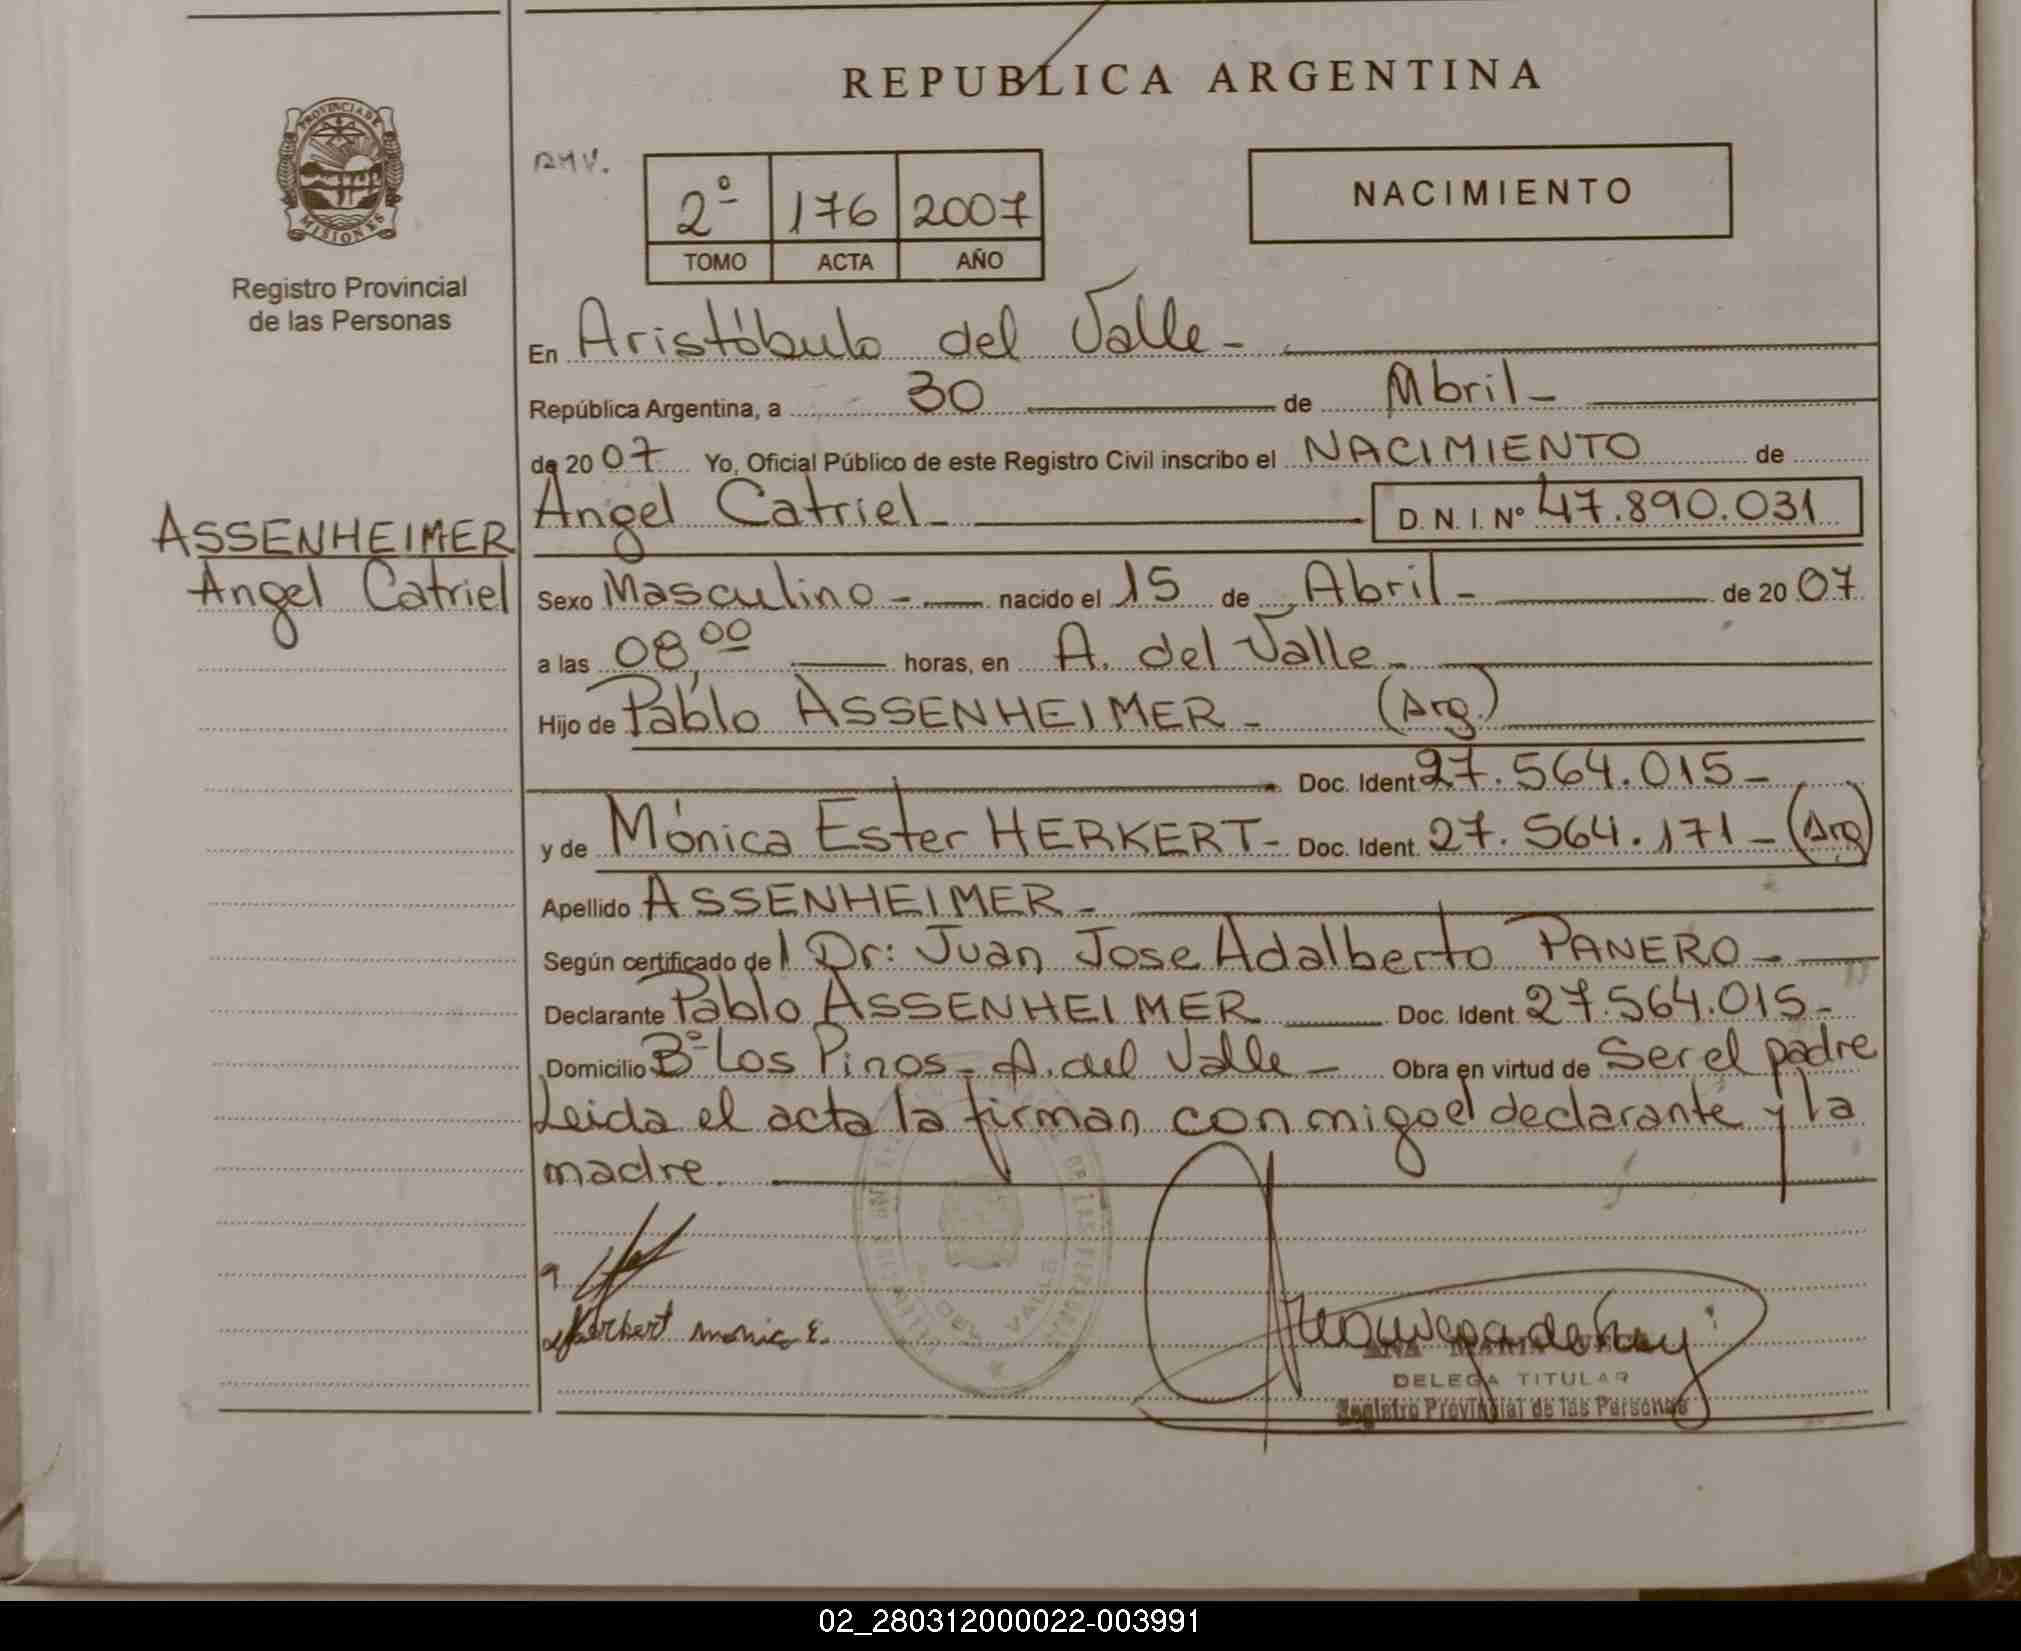 REPUBLICA ARGENTINA
PROVINCIA DE MISIONES
Registro Provincial
de las Personas
2º 176 2007
TOMO ACTA AÑO
NACIMIENTO
En Aristóbulo del Valle-
República Argentina, a 30 de Abril-
de 2007 Yo, Oficial Público de este Registro Civil inscribo el NACIMIENTO de
Angel Catriel- D. N. I. Nº 47.890.031
ASSENHEIMER
Angel Catriel
Sexo Masculino- nacido el 15 de Abril- de 2007
a las 08,00 horas, en A. del Valle-
Hijo de Pablo ASSENHEIMER- (Arg.)
Doc. Ident. 27.564.015-
y de Mónica Ester HERKERT- Doc. Ident. 27.564.171- (Arg)
Apellido ASSENHEIMER-
Según certificado del Dr: Juan Jose Adalberto PANERO-
Declarante Pablo ASSENHEIMER Doc. Ident. 27.564.015-
Domicilio Bº Los Pinos- A. del Valle- Obra en virtud de Ser el padre
Leida el acta la firman conmigo el declarante y la
madre.
Herkert Monica E.
DELEGA TITULAR
Registro Provincial de las Personas
02_280312000022-003991